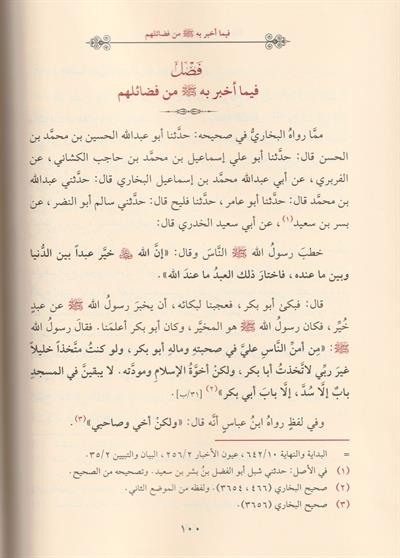 فيما أخبر به ﷺ من فضائلهم
فَصْل
فيما أخبر به ﷺ من فضائلهم
ممَّا رواهُ البخاريُّ في صحيحه: حدَّثنا أبو عبدالله الحسين بن محمَّد بن
الحسن قال: حدَّثنا أبو علي إسماعيل بن محمَّد بن حاجب الكشاني، عن
الفربري، عن أبي عبدالله محمَّد بن إسماعيل البخاري قال: حدَّثني عبدالله
بن محمَّد قال: حدَّثنا أبو عامر، حدَّثنا فليح قال: حدَّثني سالم أبو النضر، عن
بسر بن سعيد(١)، عن أبي سعيد الخدري قال:
خطبَ رسولُ الله ﷺ النَّاسَ وقال: «إنَّ الله ﷻ خيَّر عبداً بين الدُّنيا
وبين ما عنده، فاختارَ ذلك العبدُ ما عندَ الله».
قال: فبكىٰ أبو بكر، فعجبنا لبكائه، أن يخبرَ رسولُ الله ﷺ عن عبدٍ
خُيِّر، فكان رسولُ الله ﷺ هو المخيَّر، وكان أبو بكر أعلمَنا. فقالَ رسولُ الله
ﷺ: «مِن أمنِّ النَّاسِ عليَّ في صحبتهِ ومالهِ أبو بكر، ولو كنتُ متَّخذاً خليلاً
غيرَ ربِّي لاتَّخذتُ أبا بكر، ولكنْ أخوَّةُ الإسلامِ ومودَّته. لا يبقينَّ في المسجدِ
بابٌ إلَّا سُدَّ، إلَّا بابَ أبي بكر»(٢) [٣١/ب].
وفي لفظٍ رواهُ ابنُ عباسٍ أنَّه قال: «ولكنْ أخي وصاحبي»(٣).
= البداية والنهاية ٦٤٢/١٠، عيون الأخبار ٢٥٦/٢، البيان والتبيين ٣٥/٢.
(١) في الأصل: حدثني شبل أبو الفضل بنُ بشر بن سعيد. وتصحيحه من الصحيح.
(٢) صحيح البخاري (٤٦٦، ٣٦٥٤). ولفظه من الموضع الثاني.
(٣) صحيح البخاري (٣٦٥٦).
١٠٠